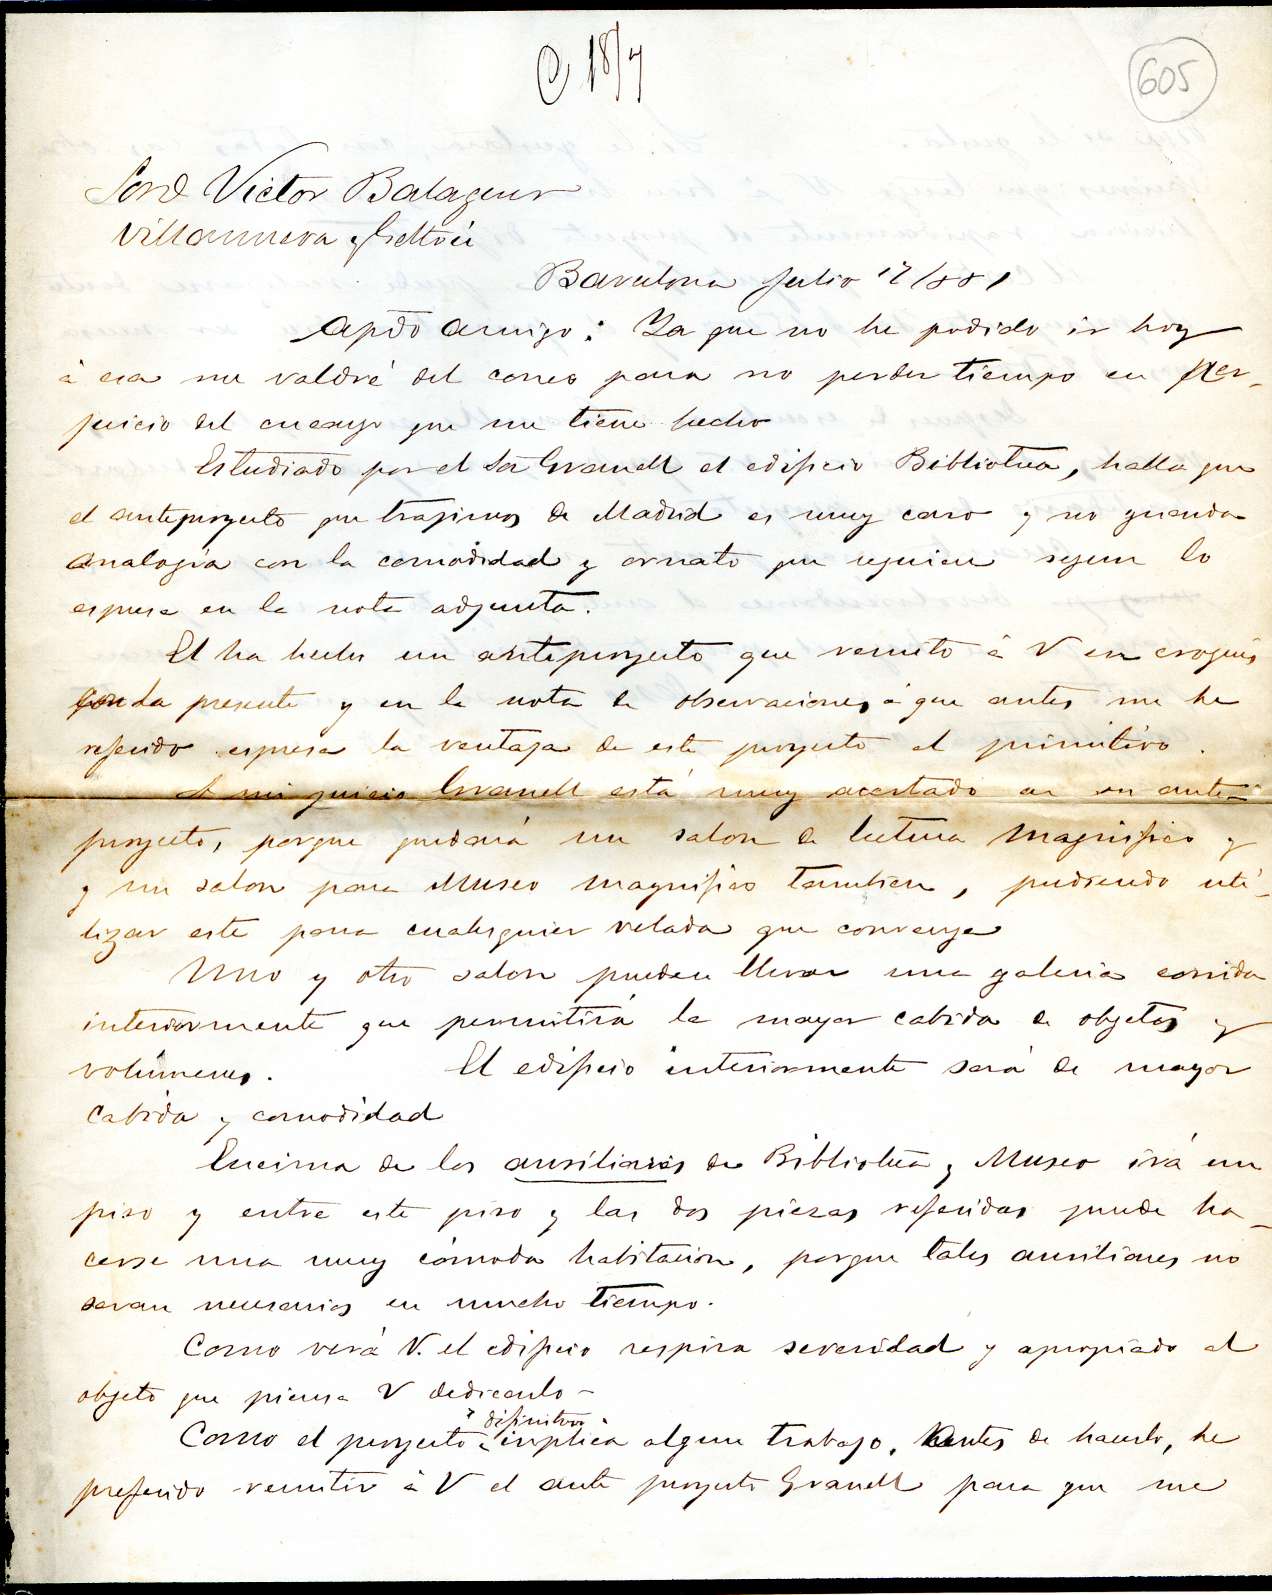 C 18/7
605
Sor D Victor Balaguer
Villanueva y Geltrú
Barcelona Julio 17/881
Apdo amigo: Ya que no he podido ir hoy
á esa me valdré del correo para no perder tiempo en per-
juicio del encargo que me tiene hecho
Estudiado por el Sor Granell el edificio Biblioteca, halla que
el anteproyecto que trajimos de Madrid es muy caro y no guarda
analogía con la comodidad y ornato que requiere segun lo
espresa en la nota adjunta.
El ha hecho un anteproyecto que remito á V en croquis
con la presente y en la nota de observaciones á que antes me he
referido espresa la ventaja de este proyecto al primitivo.
A mi juicio Granell está muy acertado en su ante-
proyecto, porque quedará un salon de lectura magnifico y
y un salon para Museo magnifico tambien, pudiendo uti-
lizar este para cualesquier velada que convenga
Uno y otro salon pueden llevar una galeria corrida
interiormente que permitirá la mayor cabida de objetos y
volúmenes. El edificio interiormente será de mayor
cabida y comodidad
Encima de los auxiliares de Biblioteca y Museo irá un
piso y entre este piso y las dos piezas referidas puede ha-
cerse una muy cómoda habitacion, porque tales auxiliares no
seran necesarios en mucho tiempo.
Como verá V. el edificio respira severidad y apropiado al
objeto que piensa V dedicarlo -
"definitivo"
Como el proyecto implica algun trabajo, antes de hacerlo, he
preferido remitir á V el ante proyecto Granell para que me